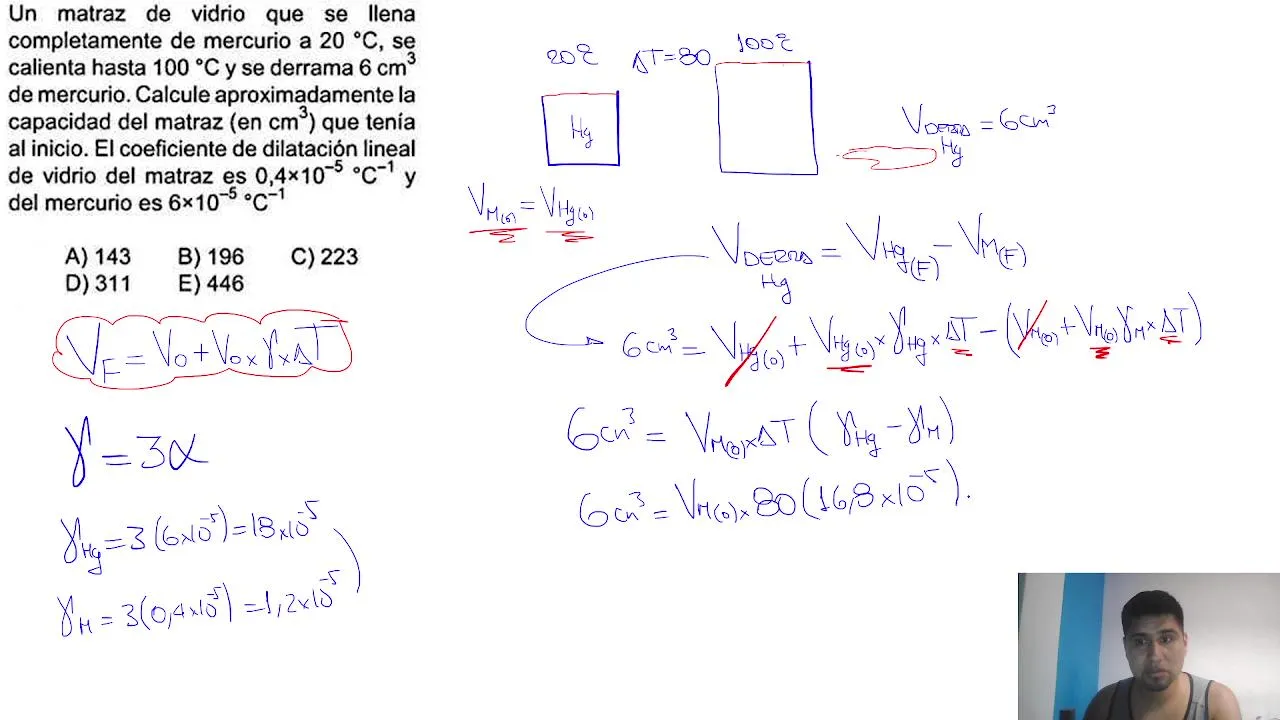 Un matraz de vidrio que se llena
completamente de mercurio a 20 °C, se
calienta hasta 100 °C y se derrama 6 cm³
de mercurio. Calcule aproximadamente la
capacidad del matraz (en cm³) que tenía
al inicio. El coeficiente de dilatación lineal
de vidrio del matraz es 0,4×10⁻⁵ °C⁻¹ y
del mercurio es 6×10⁻⁵ °C⁻¹
A) 143 B) 196 C) 223
D) 311 E) 446
V_F = V_0 + V_0 × γ × ΔT
γ = 3α
γ_Hg = 3(6×10⁻⁵) = 18×10⁻⁵
γ_M = 3(0,4×10⁻⁵) = 1,2×10⁻⁵
20°C ΔT=80 100°C
Hg
V_DERRA Hg = 6cm³
V_M(0) = V_Hg(0)
V_DERRA Hg = V_Hg(F) − V_M(F)
6cm³ = V_Hg(0) + V_Hg(0) × γ_Hg × ΔT − (V_M(0) + V_M(0) γ_M × ΔT)
6cm³ = V_M(0) × ΔT (γ_Hg − γ_M)
6cm³ = V_M(0) × 80 (16,8×10⁻⁵).